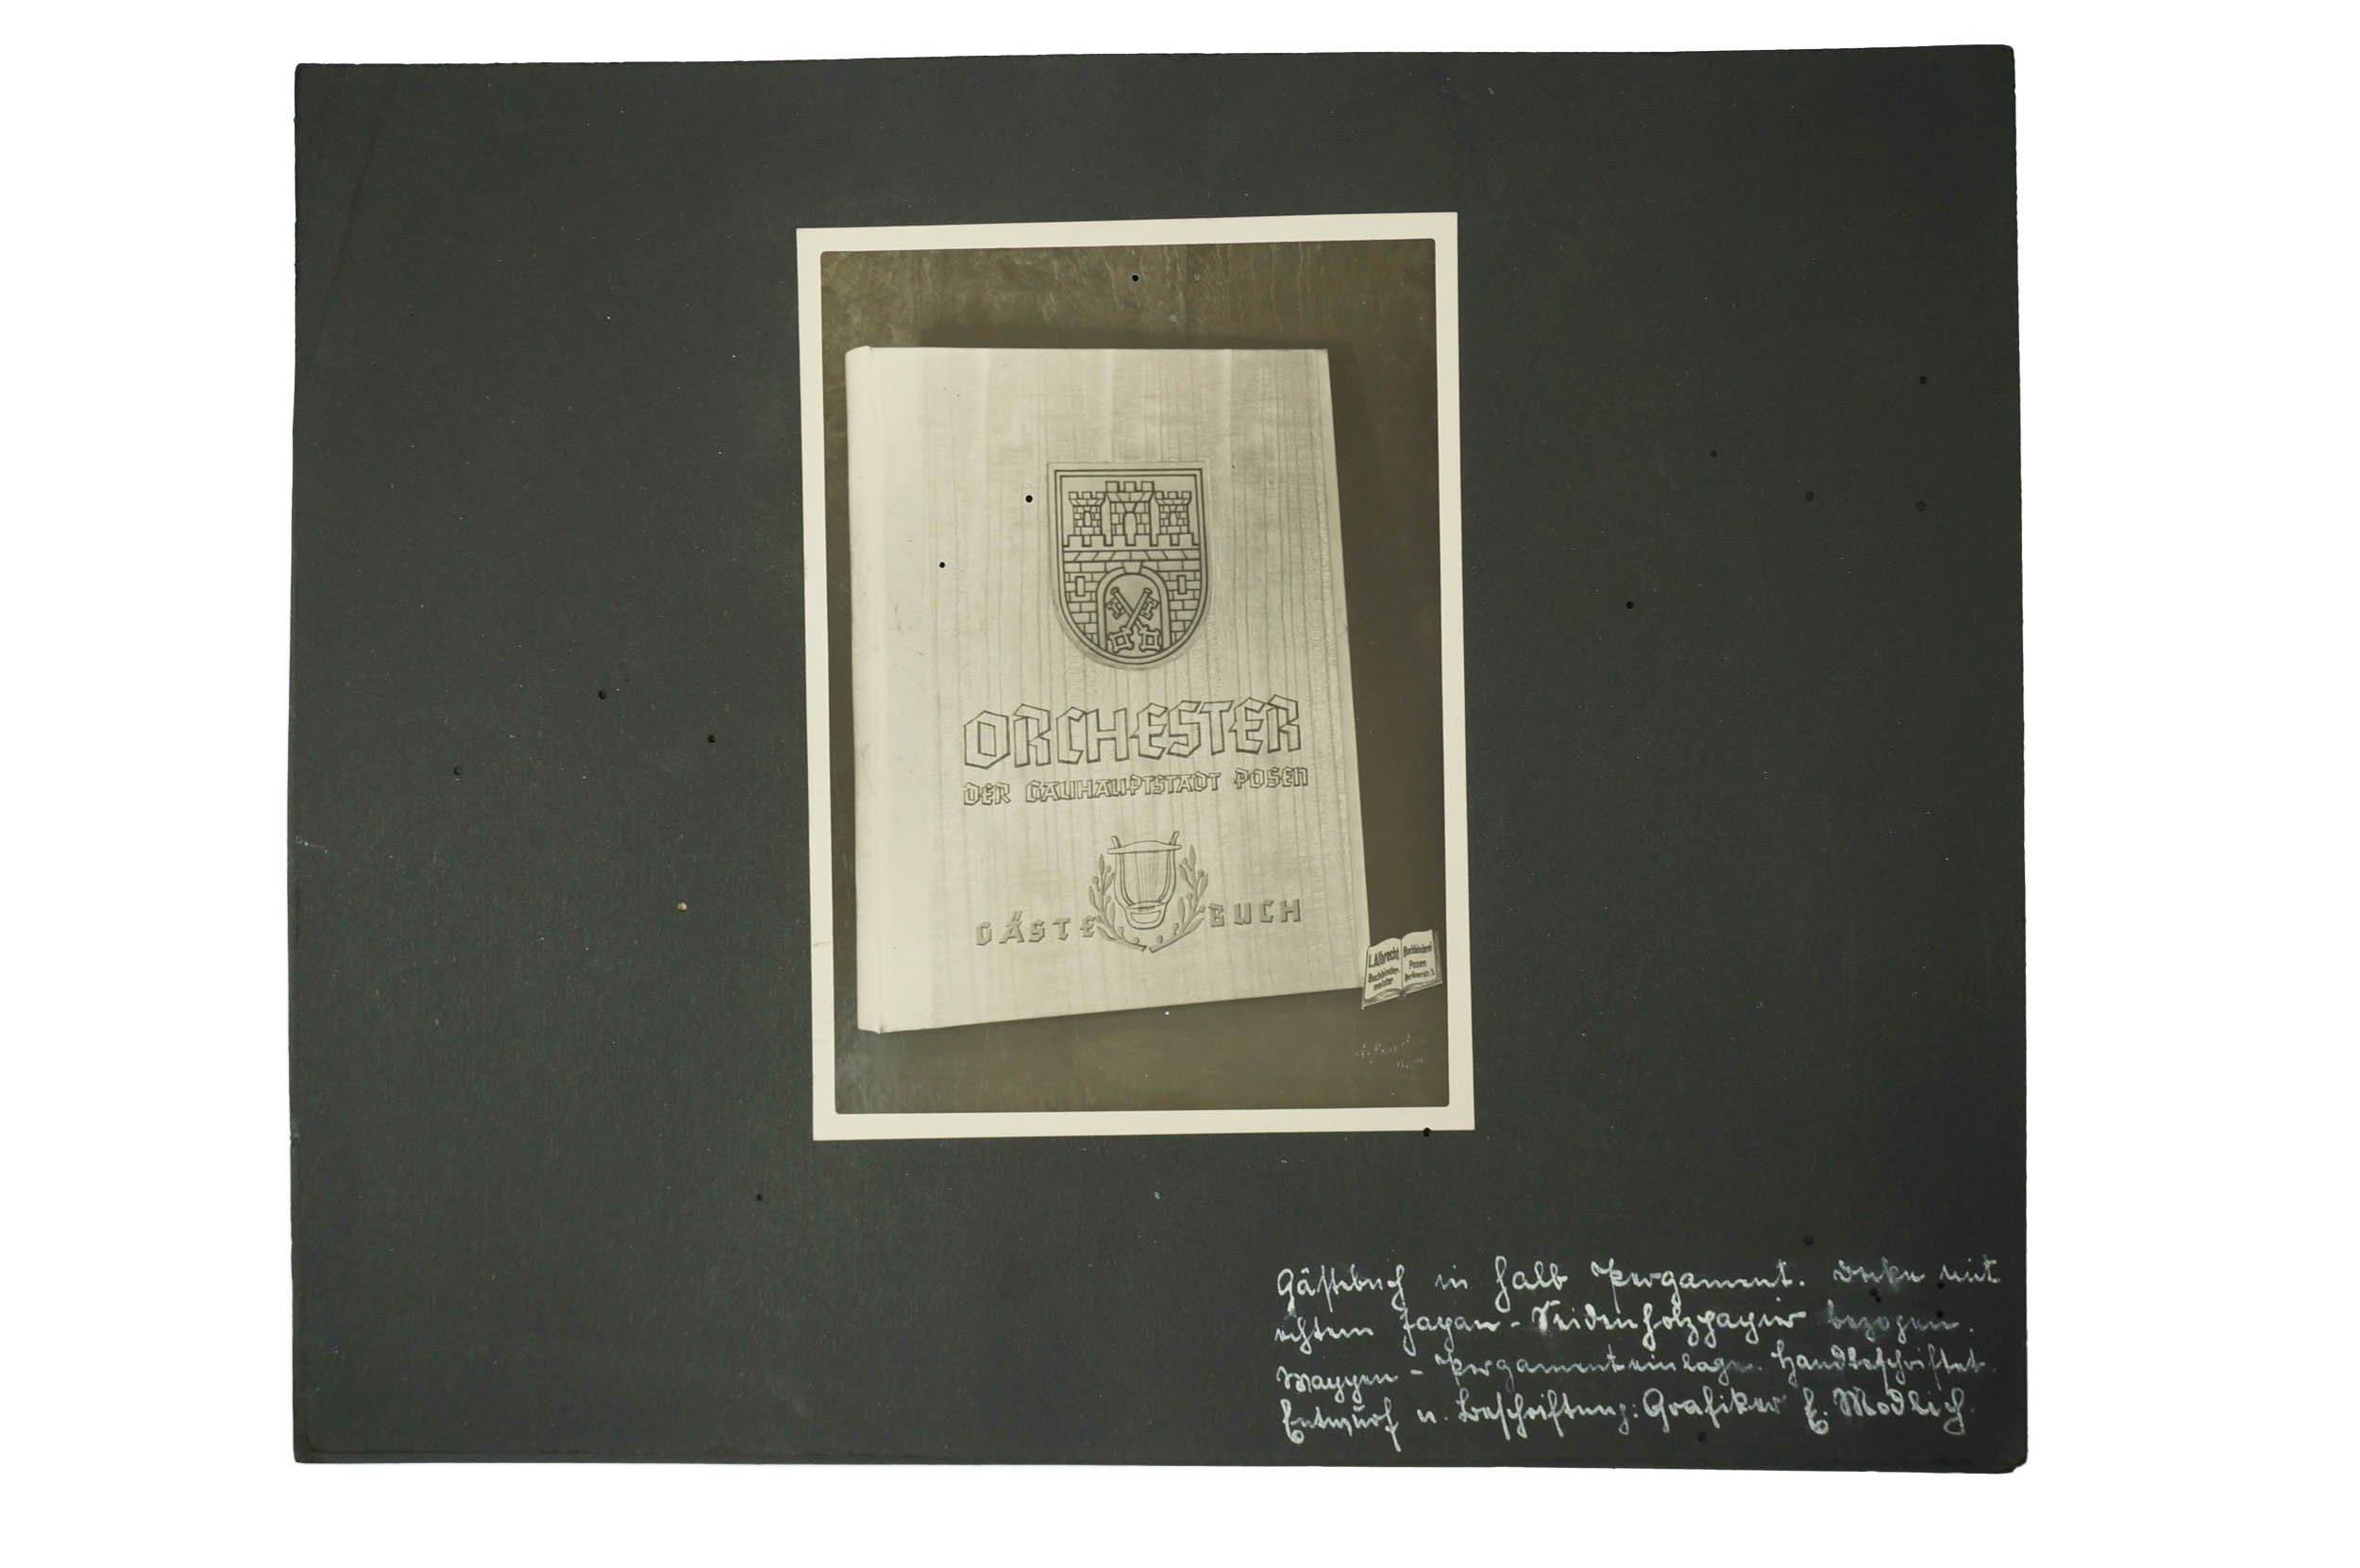 ORCHESTER
DER GAUHAUPTSTADT POSEN
GÄSTEBUCH
I. Albrecht
Buchbinder-
meister
Buchbinderei
Posen
Gästebuch in halb Pergament. Decke mit
echtem Japan-Seidenholzpapier bezogen.
Wappen - Pergamenteinlage. Handbeschriftet.
Entwurf u. Beschriftung: Grafiker E. Modlich.